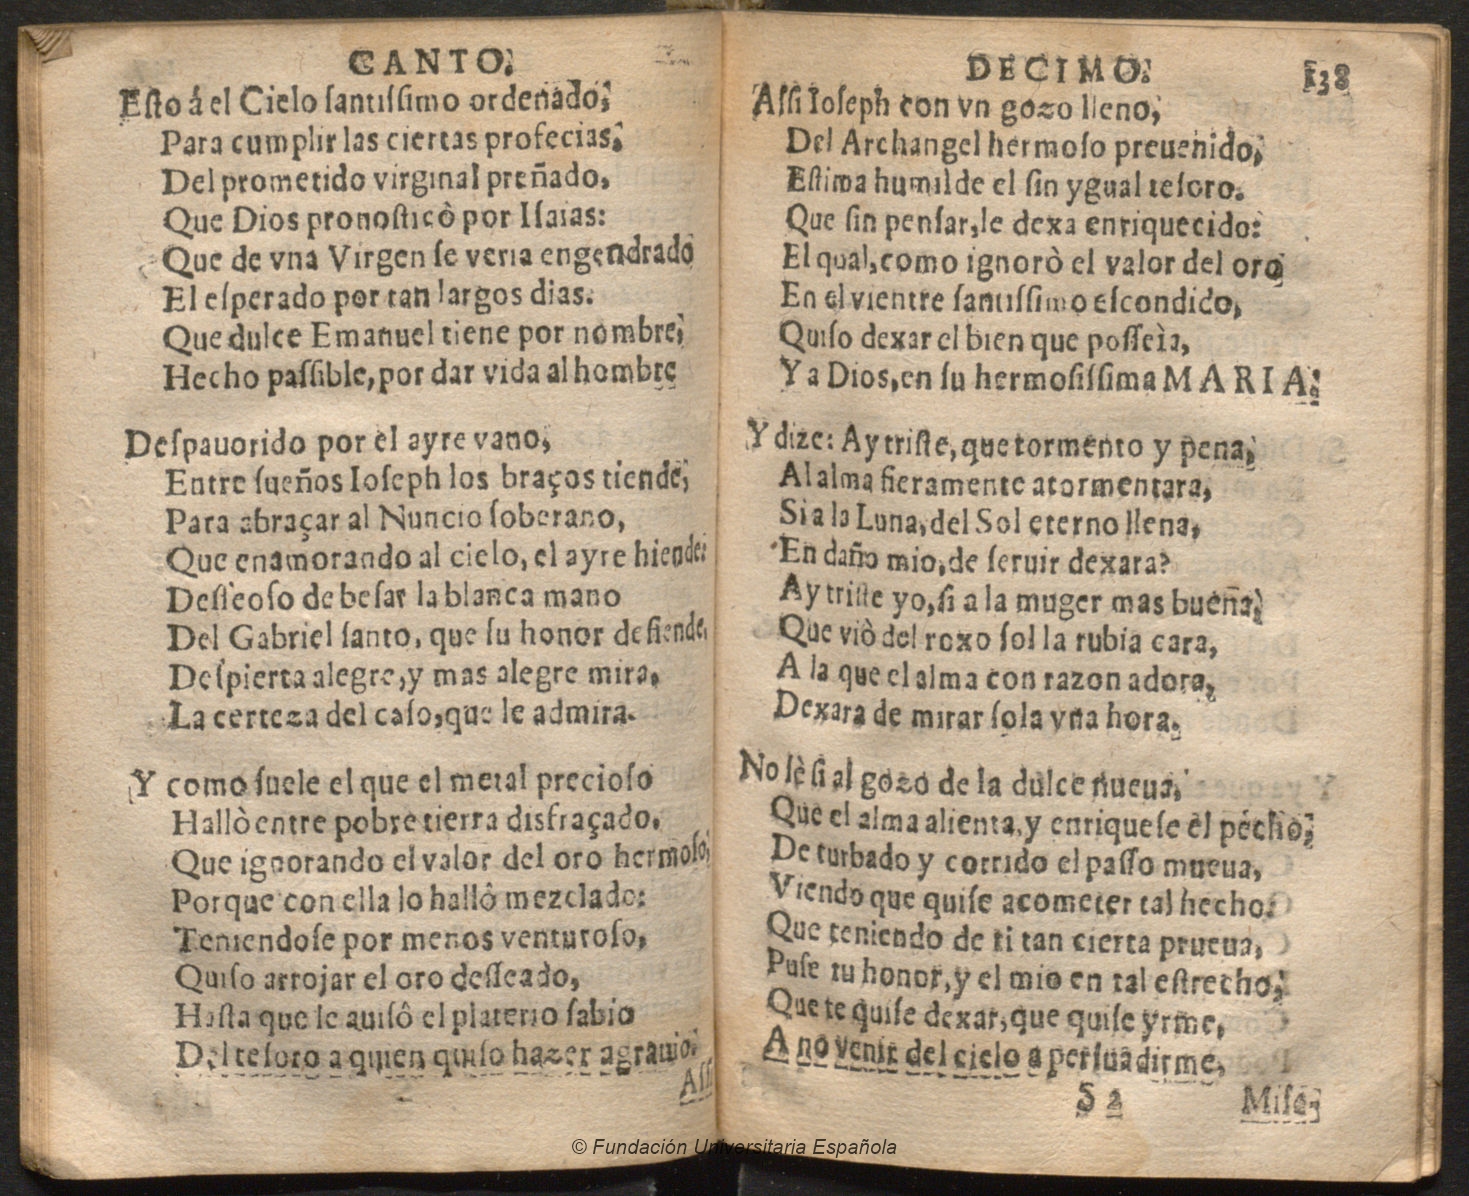 CANTO.
Esto á el Cielo santissimo ordenado,
Para cumplir las ciertas profecias,
Del prometido virginal preñado,
Que Dios pronosticò por Isaias:
Que de vna Virgen se veria engendrado
El esperado por tan largos dias.
Que dulce Emanuel tiene por nombre,
Hecho passible, por dar vida al hombre
Despauorido por el ayre vano,
Entre sueños Ioseph los braços tiende,
Para abraçar al Nuncio soberano,
Que enamorando al cielo, el ayre hiende:
Desseoso de besar la blanca mano
Del Gabriel santo, que su honor defiende,
Despierta alegre, y mas alegre mira,
La certeza del caso, que le admira.
Y como suele el que el metal precioso
Hallò entre pobre tierra disfraçado,
Que ignorando el valor del oro hermoso,
Porque con ella lo hallô mezclado:
Teniendose por menos venturoso,
Quiso arrojar el oro desseado,
Hasta que le auisô el platerio sabio
Del tesoro a quien quiso hazer agrauio.
Assi
DECIMO.
138
Assi Ioseph con vn gozo lleno,
Del Archangel hermoso preuenido,
Estima humilde el sin ygual tesoro.
Que sin pensar, le dexa enriquecido:
El qual, como ignorò el valor del oro
En el vientre santissimo escondido,
Quiso dexar el bien que posseìa,
Y a Dios, en su hermosissima MARIA.
Y dize: Ay triste, que tormento y pena,
Al alma fieramente atormentara,
Si a la Luna, del Sol eterno llena,
En daño mio, de seruir dexara?
Ay triste yo, si a la muger mas buena,
Que viò del roxo sol la rubia cara,
A la que el alma con razon adora,
Dexara de mirar sola vna hora.
No sè si al gozo de la dulce nueua,
Que el alma alienta, y enriquese el pecho,
De turbado y corrido el passo mueua,
Viendo que quise acometer tal hecho:
Que teniendo de ti tan cierta prueua,
Puse tu honor, y el mio en tal estrecho,
Que te quise dexar, que quise yrme,
A no venir del cielo a persuadirme,
S 2
Mise-
© Fundación Universitaria Española